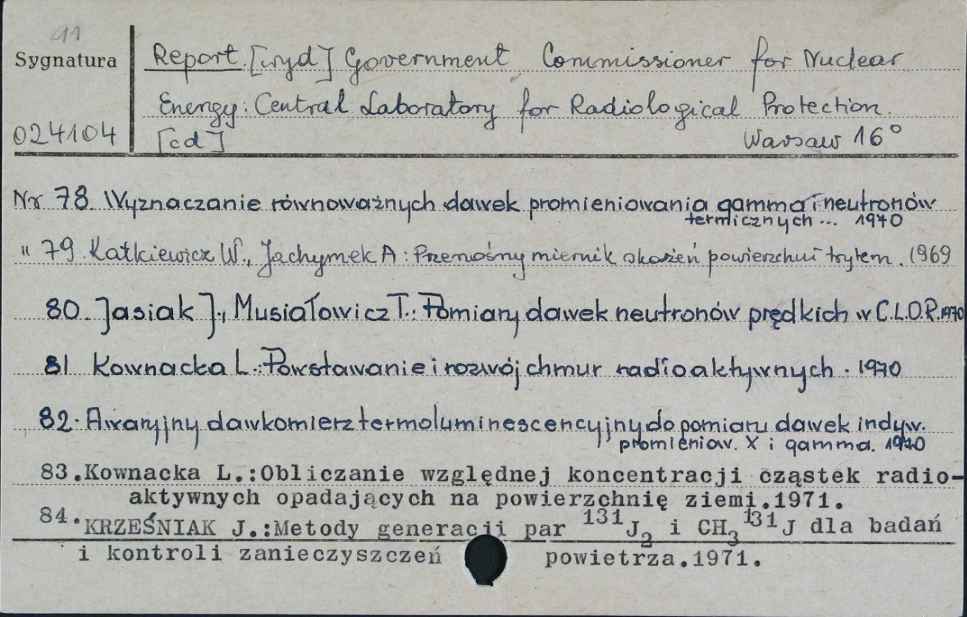 91
Sygnatura Report. [wyd] Government Commissioner for Nuclear
Energy: Central Laboratory for Radiological Protection.
024104 [cd] Warsaw 16°
Nr 78. Wyznaczanie równoważnych dawek promieniowania gamma i neutronów
termicznych ... 1970
" 79. Kałkiewicz W., Jachymek A: Przenośny miernik skażeń powierzchni trytem. 1969
80. Jasiak J., Musiałowicz T.: Pomiary dawek neutronów prędkich w C.L.O.R. 1970
81 Kownacka L.: Powstawanie i rozwój chmur radioaktywnych. 1970
82. Awaryjny dawkomierz termoluminescencyjny do pomiaru dawek indyw.
promieniow. X i gamma. 1970
83. Kownacka L.: Obliczanie względnej koncentracji cząstek radio-
aktywnych opadających na powierzchnię ziemi. 1971.
84. KRZEŚNIAK J.: Metody generacji par ¹³¹J₂ i CH₃¹³¹J dla badań
i kontroli zanieczyszczeń powietrza. 1971.